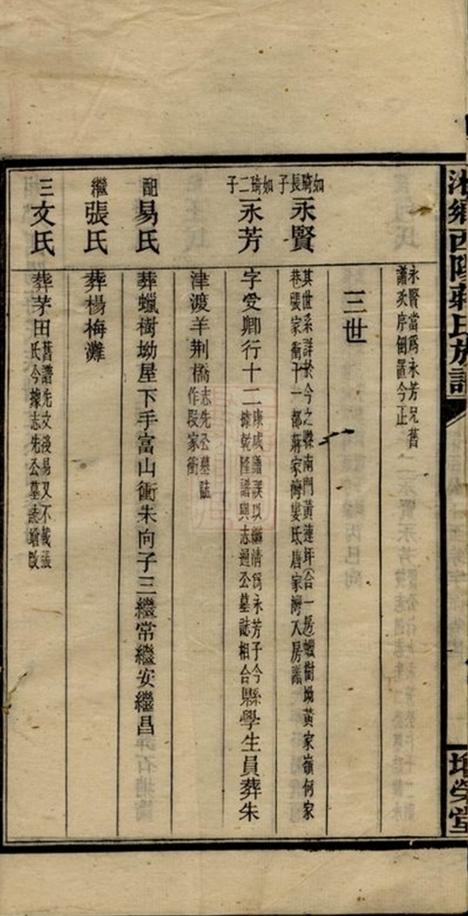 湘鄉西陽蔣氏族譜
培榮堂
永賢當爲永芳兄舊
譜次序倒置今正
三世
如琦長子
永賢
其世系詳於今之縣南門黃連坪合一悬蠟樹坳黃家嶺何家
巷張家衝十一都蔣家灣婁底唐家灣八房譜
如琦二子
永芳
字愛卿行十二
康咸譜誤以繼清爲永芳子今
據乾隆譜與志通公墓誌相合
縣學生員葬朱
津渡羊荆橋
志先公墓誌
作段家衝
配易氏
葬蠟樹坳屋下手富山衝朱向子三繼常繼安繼昌
繼張氏
葬楊梅灘
三文氏
葬茅田
舊譜先文後易又不載張
氏今據志先公墓誌增改